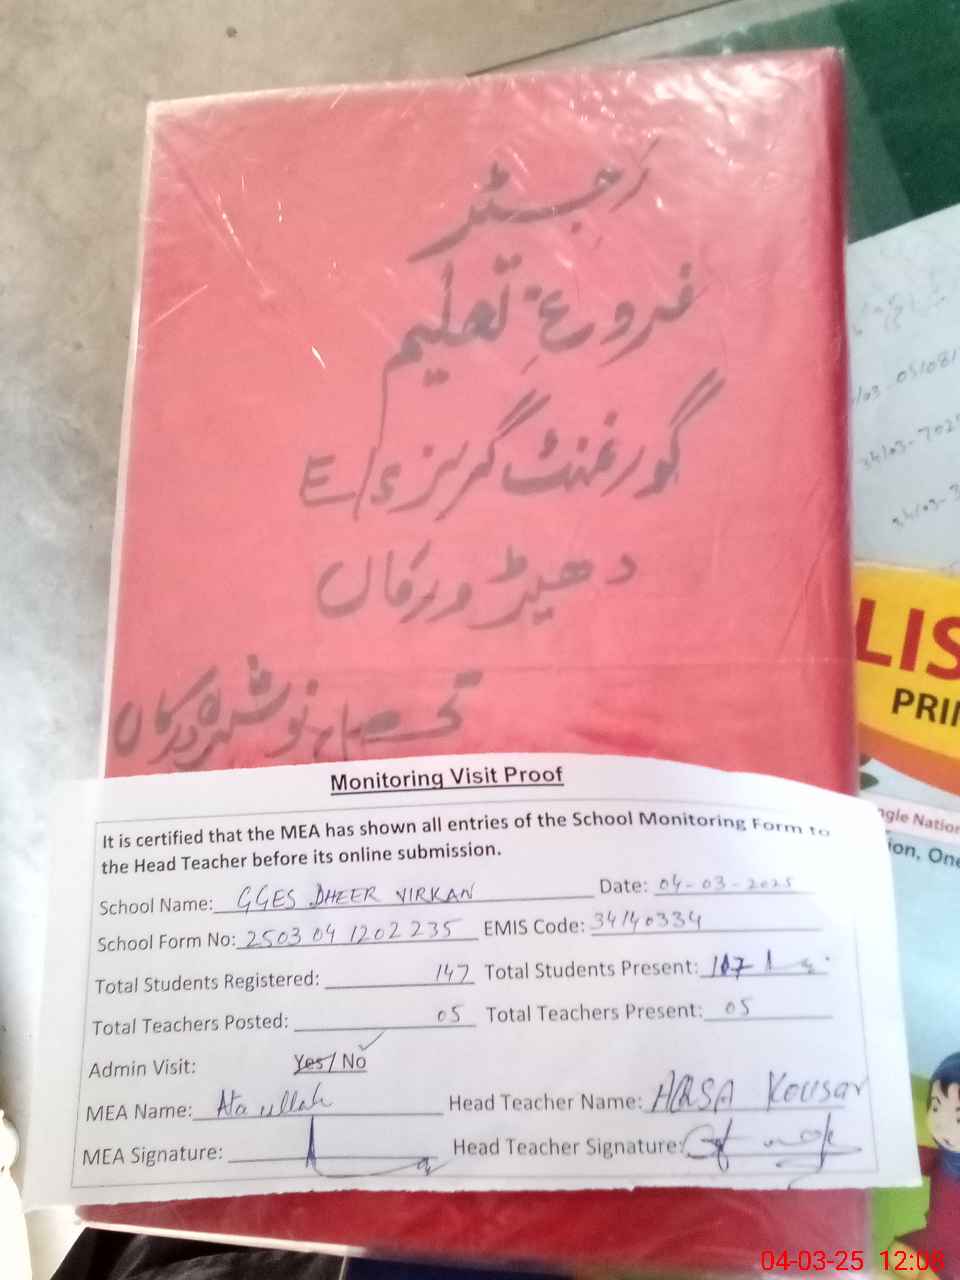 رجسٹر
فروغِ تعلیم
گورنمنٹ گرلز ء/E
دھیڑ ورکاں
تحصیل نوشہرہ ورکاں
Monitoring Visit Proof
It is certified that the MEA has shown all entries of the School Monitoring Form to
the Head Teacher before its online submission.
School Name: GGES DHEER VIRKAN Date: 04-03-2025
School Form No: 2503 04 1202 235 EMIS Code: 34140334
Total Students Registered: 147 Total Students Present: 107
Total Teachers Posted: 05 Total Teachers Present: 05
Admin Visit: Yes/ No
MEA Name: Ata ullah Head Teacher Name: Kousar
MEA Signature: Head Teacher Signature:
LIS
PRI
ngle Nation
ion, One
04-03-25 12:08